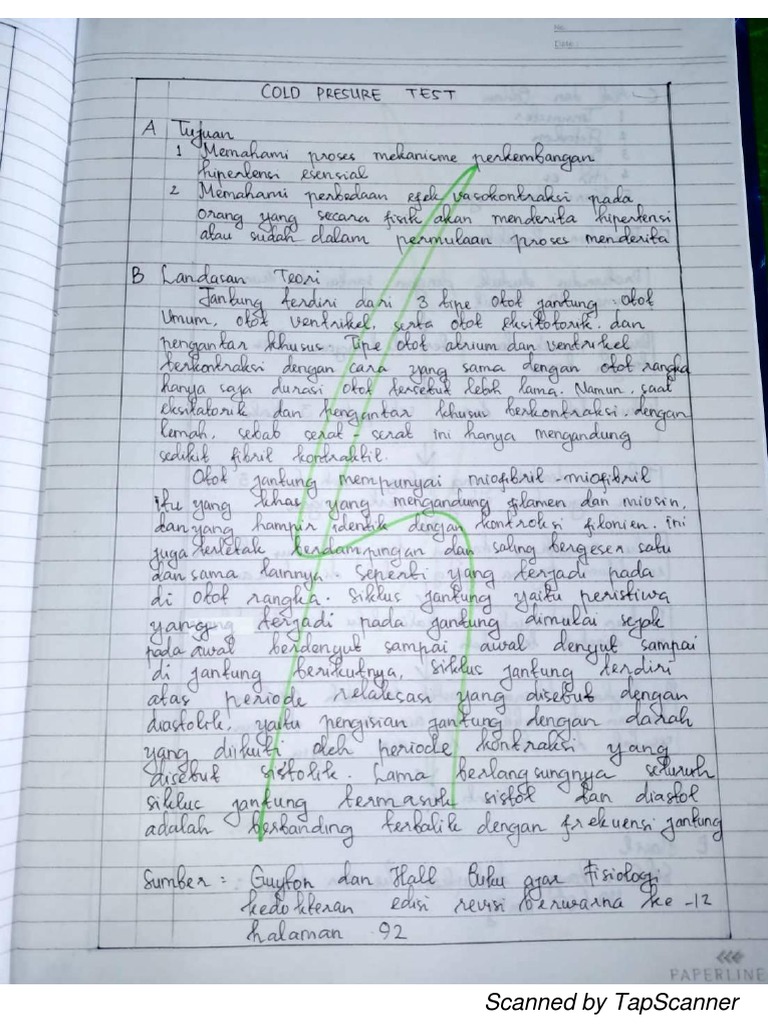 No.
Date:
COLD PRESURE TEST
A Tujuan
1 Memahami proses mekanisme perkembangan
hipertensi esensial
2 Memahami perbedaan efek vasokontraksi pada
orang yang secara fisik akan menderita hipertensi
atau sudah dalam permulaan proses menderita
B Landasan Teori
Jantung terdiri dari 3 tipe otot jantung. otot
Umum, otot ventrikel, serta otot eksitotorik. dan
pengantar khusus Tipe otot atrium dan ventrikel
berkontraksi dengan cara yang sama dengan otot rangka
hanya saja durasi otot tersebut lebih lama. Namun, saat
eksitatorik dan pengantar khusus berkontraksi dengan
lemah, sebab serat-serat ini hanya mengandung
sedikit fibril kontraktil.
Otot jantung mempunyai miofibril-miofibril
itu yang khas yang mengandung filamen dan miosin,
dan yang hampir identik dengan kontroksi filomen. ini
juga terletak berdampingan dan saling bergeser satu
dan sama lainnya. Seperti yang terjadi pada
di otot rangka. Siklus jantung yaitu peristiwa
yang terjadi pada jantung dimulai sejak
pada awal berdenyut sampai awal denyut sampai
di jantung berikutnya, siklus jantung terdiri
atas periode relaksasi yang disebut dengan
diastolik, yaitu pengisian jantung dengan darah
yang diikuti oleh periode kontraksi yang
disebut sistolik. Lama berlangsungnya seluruh
siklus jantung termasuk sistol dan diastol
adalah berbanding terbalik dengan frekuensi jantung
Sumber : Guyton dan Hall Buku ajar Fisiologi
kedokteran edisi revisi berwarna ke-12
halaman 92
PAPERLINE
Scanned by TapScanner